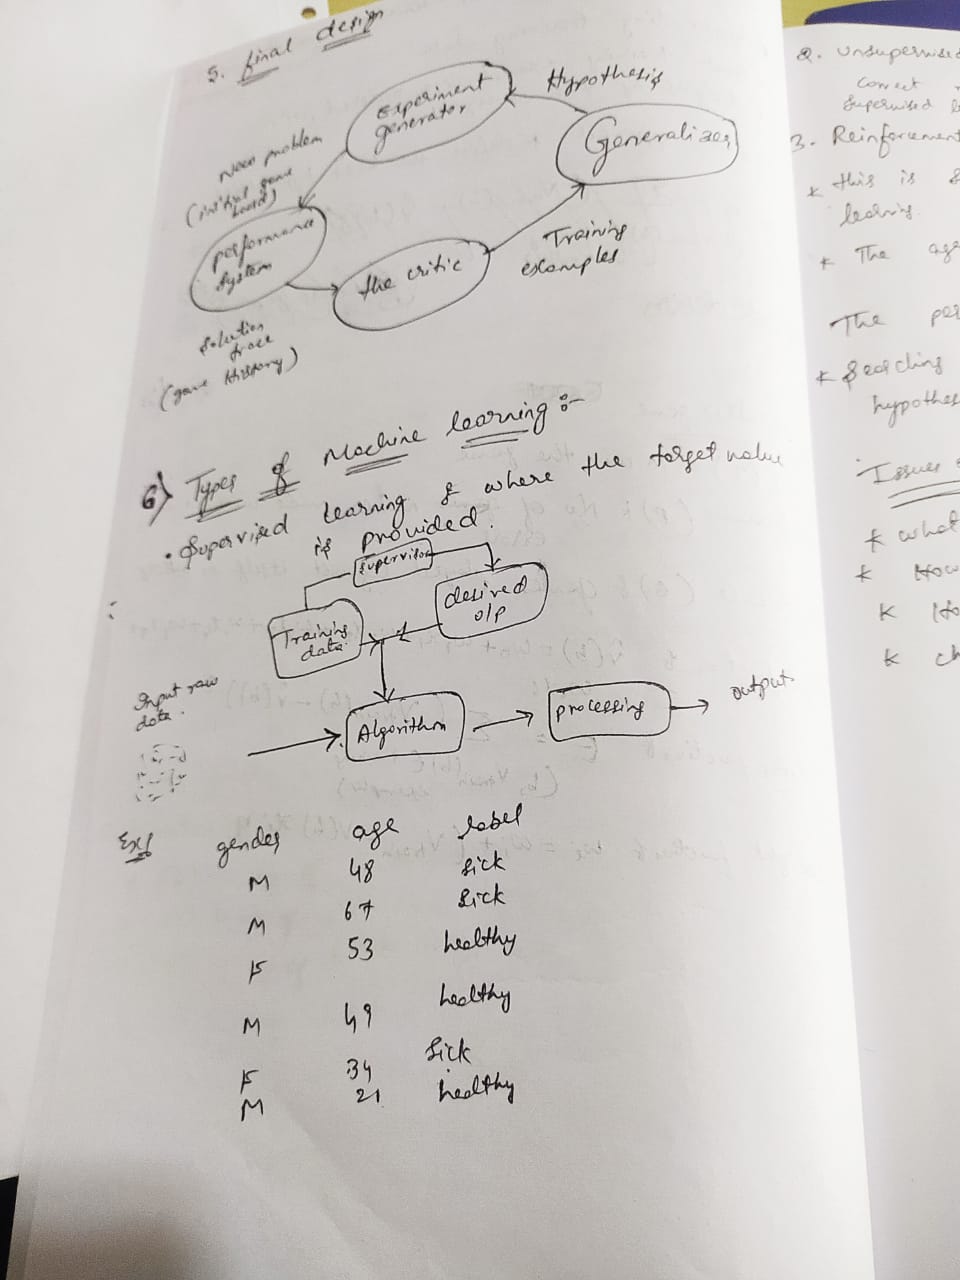 5. final design
Experiment
generator
Hypothesis
Generalizer
New problem
(initial game
board)
performance
system
the critic
Training
examples
Solution
trace
(game History)
6) Types of Machine learning :-
• Supervised learning & where the target value
is provided.
supervisor
Training
data
desired
o/p
Input raw
data.
Algorithm
processing
output
Ex:
gender age label
M 48 sick
M 67 sick
F 53 healthy
M 49 healthy
F 34 sick
M 21 healthy
2. Unsupervised
correct
supervised
3. Reinforcement
* this is
learning
* The
The
* Searching
hypothes
Issues
* what
* How
*
*